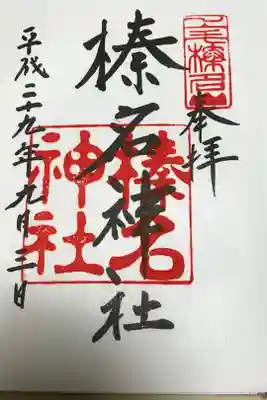 奉拝
上毛榛名
榛名神社
榛名神社
平成二十九年九月三日